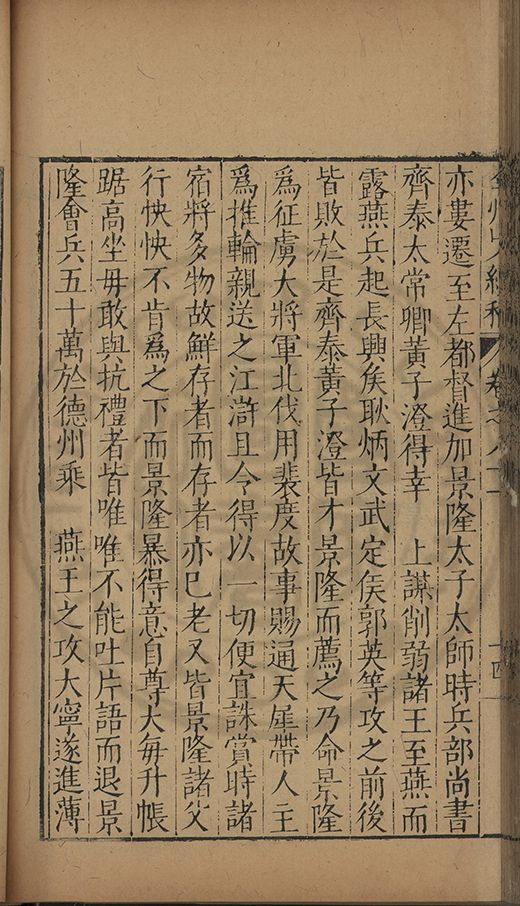 亦婁遷至左都督進加景隆太子太師時兵部尚書
齊泰太常卿黃子澄得幸　上謀削弱諸王至燕而
露燕兵起長興矦耿炳文武定矦郭英等攻之前後
皆敗於是齊泰黃子澄皆才景隆而薦之乃命景隆
爲征虜大將軍北伐用裴度故事賜通天犀帶人主
爲推輪親送之江滸且令得以一切便宜誅賞時諸
宿將多物故鮮存者而存者亦已老又皆景隆諸父
行怏怏不肯爲之下而景隆暴得意自尊大每升帳
踞高坐毋敢與抗禮者皆唯唯不能吐片語而退景
隆會兵五十萬於德州乘　燕王之攻大寧遂進薄